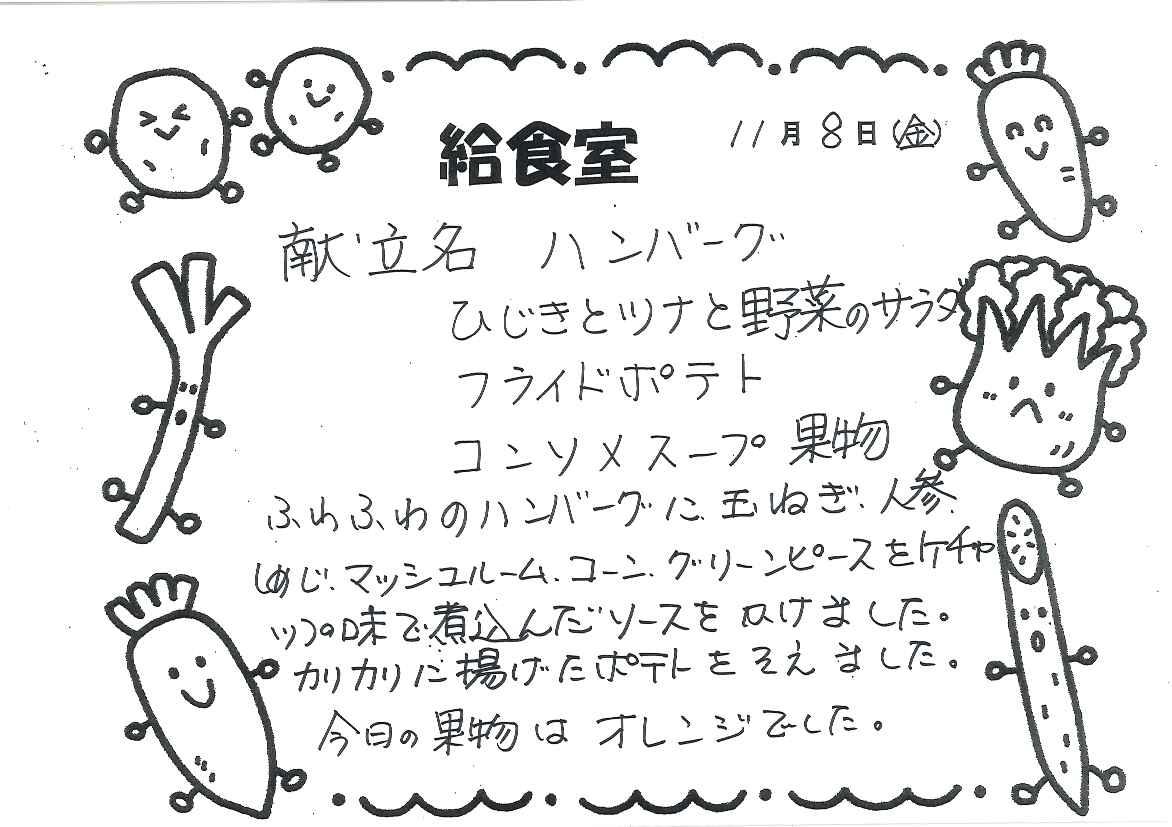 給食室 11月8日(金)
献立名 ハンバーグ
ひじきとツナと野菜のサラダ
フライドポテト
コンソメスープ 果物
ふわふわのハンバーグに、玉ねぎ、人参、
しめじ、マッシュルーム、コーン、グリーンピースをケチャ
ップの味で煮込んだソースをかけました。
カリカリに揚げたポテトをそえました。
今日の果物は オレンジでした。